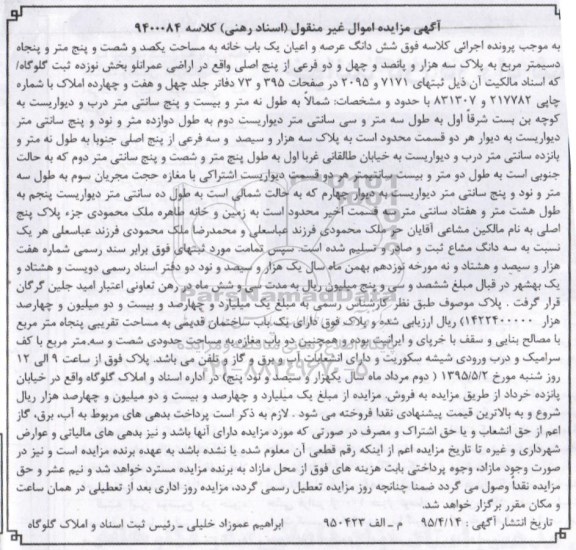 آگهی مزایده اموال غیر منقول (اسناد رهنی) کلاسه ۹۴۰۰۰۸۴
به موجب پرونده اجرائی کلاسه فوق شش دانگ عرصه و اعیان یک باب خانه به مساحت یکصد و شصت و پنج متر و پنجاه
دسیمتر مربع به پلاک سه هزار و پانصد و چهل و دو فرعی از پنج اصلی واقع در اراضی عمرانلو بخش نوزده ثبت گلوگاه/
که اسناد مالکیت آن ذیل ثبتهای ۷۱۷۱ و ۲۰۹۵ در صفحات ۳۹۵ و ۷۳ دفاتر جلد چهل و هفت و چهارده املاک با شماره
چاپی ۲۱۷۷۸۲ و ۸۳۱۳۰۷ با حدود و مشخصات: شمالاً به طول نه متر و بیست و پنج سانتی متر درب و دیواریست به
کوچه بن بست شرقاً اول به طول سه متر و سی سانتی متر دیواریست دوم به طول دوازده متر و نود و پنج سانتی متر
دیواریست به دیوار هر دو قسمت محدود است به پلاک سه هزار و سیصد و سه فرعی از پنج اصلی جنوبا به طول نه متر و
پانزده سانتی متر درب و دیواریست به خیابان طالقانی غربا اول به طول پنج متر و شصت و پنج سانتی متر دوم که به حالت
جنوبی است به طول دو متر و بیست سانتیمتر هر دو قسمت دیواریست اشتراکی با مغازه حجت مجریان سوم به طول سه
متر و نود و پنج سانتی متر دیواریست به دیوار چهارم که به حالت شمالی است به طول ده سانتی متر دیواریست پنجم به
طول هشت متر و هفتاد سانتی متر سه قسمت اخیر محدود است به زمین و خانه طاهره ملک محمودی جزء پلاک پنج
اصلی به نام مالکین مشاعی آقایان حر ملک محمودی فرزند عباسعلی و محمدرضا ملک محمودی فرزند عباسعلی هر یک
نسبت به سه دانگ مشاع ثبت و صادر و تسلیم شده است. سپس تمامت مورد ثبتهای فوق برابر سند رسمی شماره هفت
هزار و سیصد و هشتاد و نه مورخه نوزدهم بهمن ماه سال یک هزار و سیصد و نود دو دفتر اسناد رسمی دویست و هشتاد و
یک بهشهر در قبال مبلغ ششصد و سی و پنج میلیون ریال به مدت سی و شش ماه در رهن تعاونی اعتبار امید جلین گرگان
قرار گرفت . پلاک موصوف طبق نظر کارشناس رسمی به مبلغ یک میلیارد و چهارصد و بیست و دو میلیون و چهارصد
هزار (۱۴۲۲۴۰۰۰۰۰ ریال ارزیابی شده و پلاک فوق دارای یک باب ساختمان قدیمی به مساحت تقریبی پنجاه متر مربع
با مصالح بنایی و سقف با خرپای و ایرانیت بوده و همچنین دو باب مغازه به مساحت حدودی شصت و سه.متر مربع با کف
سرامیک و درب ورودی شیشه سکوریت و دارای انشعابات آب و برق و گاز و تلفن می باشد. پلاک فوق از ساعت ۹ الی ۱۲
روز شنبه مورخ ۱۳۹۵/۵/۲ ( دوم مرداد ماه سال یکهزار و سیصد و نود پنج) در اداره اسناد و املاک گلوگاه واقع در خیابان
پانزده خرداد از طریق مزایده به فروش. مزایده از مبلغ یک میلیارد و چهارصد و بیست و دو میلیون و چهارصد هزار ریال
شروع و به بالاترین قیمت پیشنهادی نقدا فروخته می شود . لازم به ذکر است پرداخت بدهی های مربوط به آب، برق، گاز
اعم از حق انشعاب و یا حق اشتراک و مصرف در صورتی که مورد مزایده دارای آنها باشد و نیز بدهی های مالیاتی و عوارض
شهرداری و غیره تا تاریخ مزایده اعم از اینکه رقم قطعی آن معلوم شده یا نشده باشد به عهده برنده مزایده است و نیز در
صورت وجود مازاد، وجوه پرداختی بابت هزینه های فوق از محل مازاد به برنده مزایده مسترد خواهد شد و نیم عشر و حق
مزایده نقداً وصول می گردد ضمنا چنانچه روز مزایده تعطیل رسمی گردد، مزایده روز اداری بعد از تعطیلی در همان ساعت
و مکان مقرر برگزار خواهد شد.
تاریخ انتشار آگهی : ۹۵/۴/۱۴ م - الف ۹۵۰۴۲۳ ابراهیم عموزاد خلیلی - رئیس ثبت اسناد و املاک گلوگاه